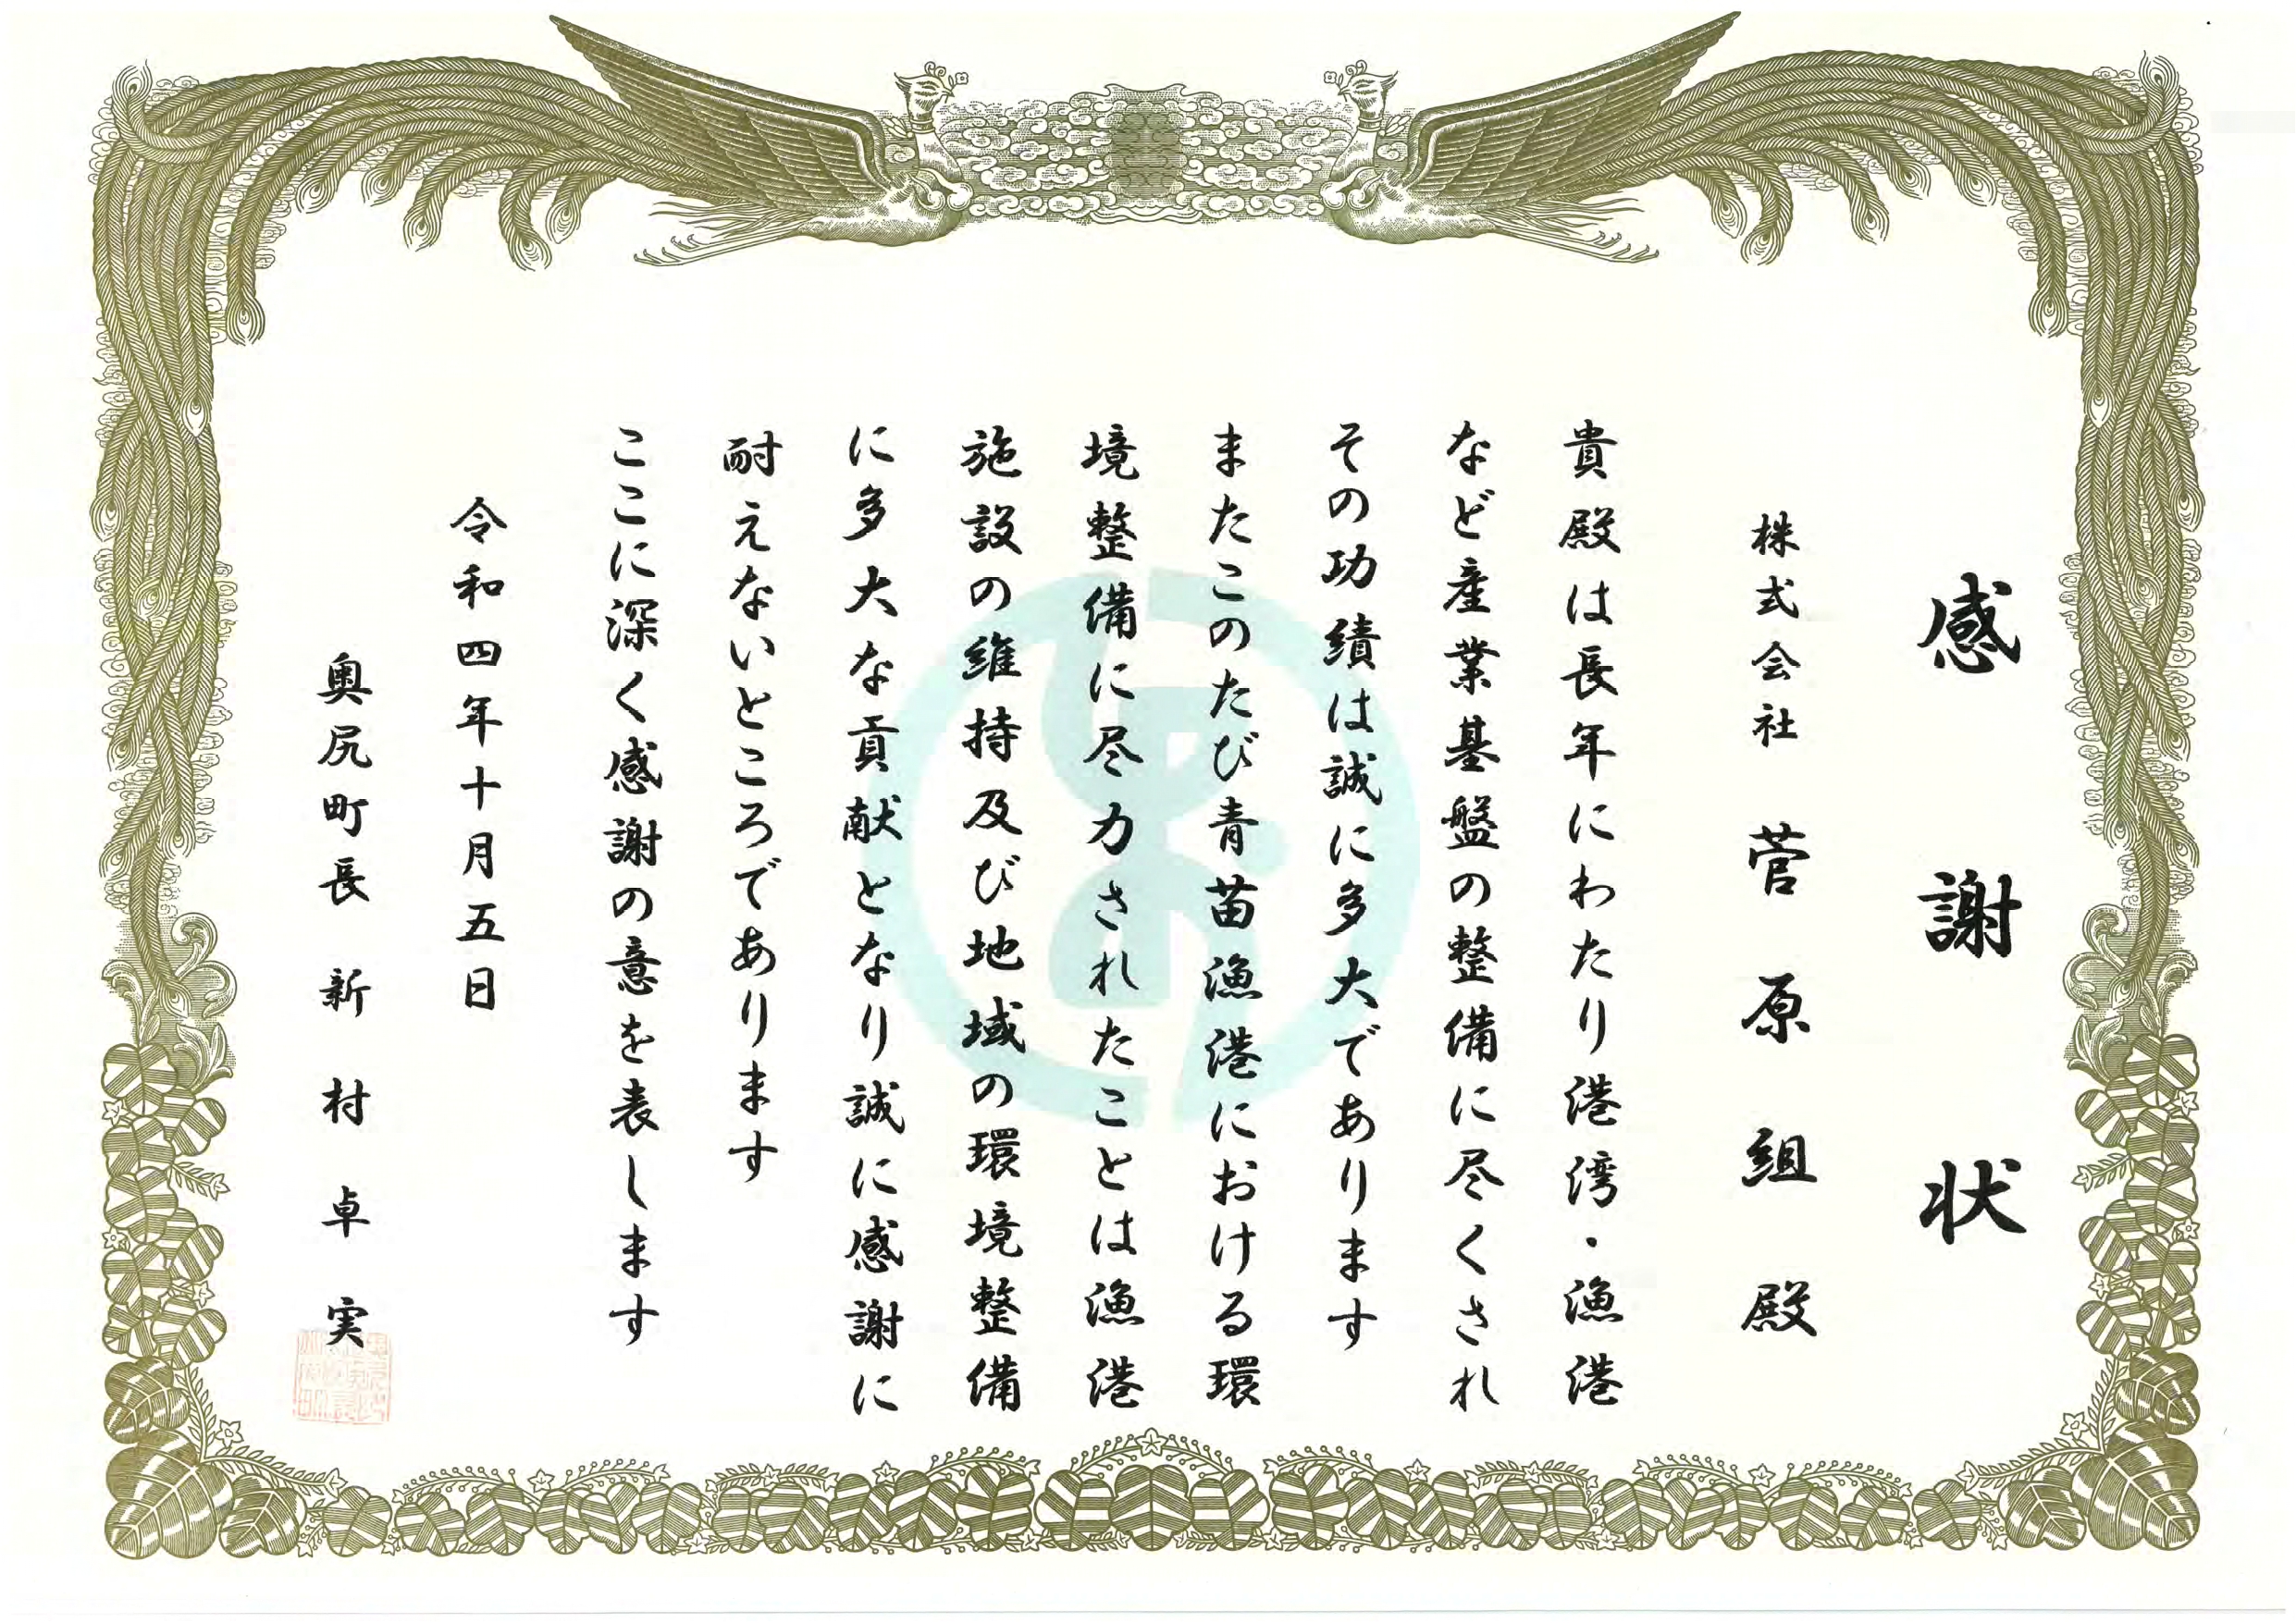 感謝状
株式会社 菅原組 殿
貴殿は長年にわたり港湾・漁港
など産業基盤の整備に尽くされ
その功績は誠に多大であります
またこのたび青苗漁港における環
境整備に尽力されたことは漁港
施設の維持及び地域の環境整備
に多大な貢献となり誠に感謝に
耐えないところであります
ここに深く感謝の意を表します
令和四年十月五日
奥尻町長 新村卓実